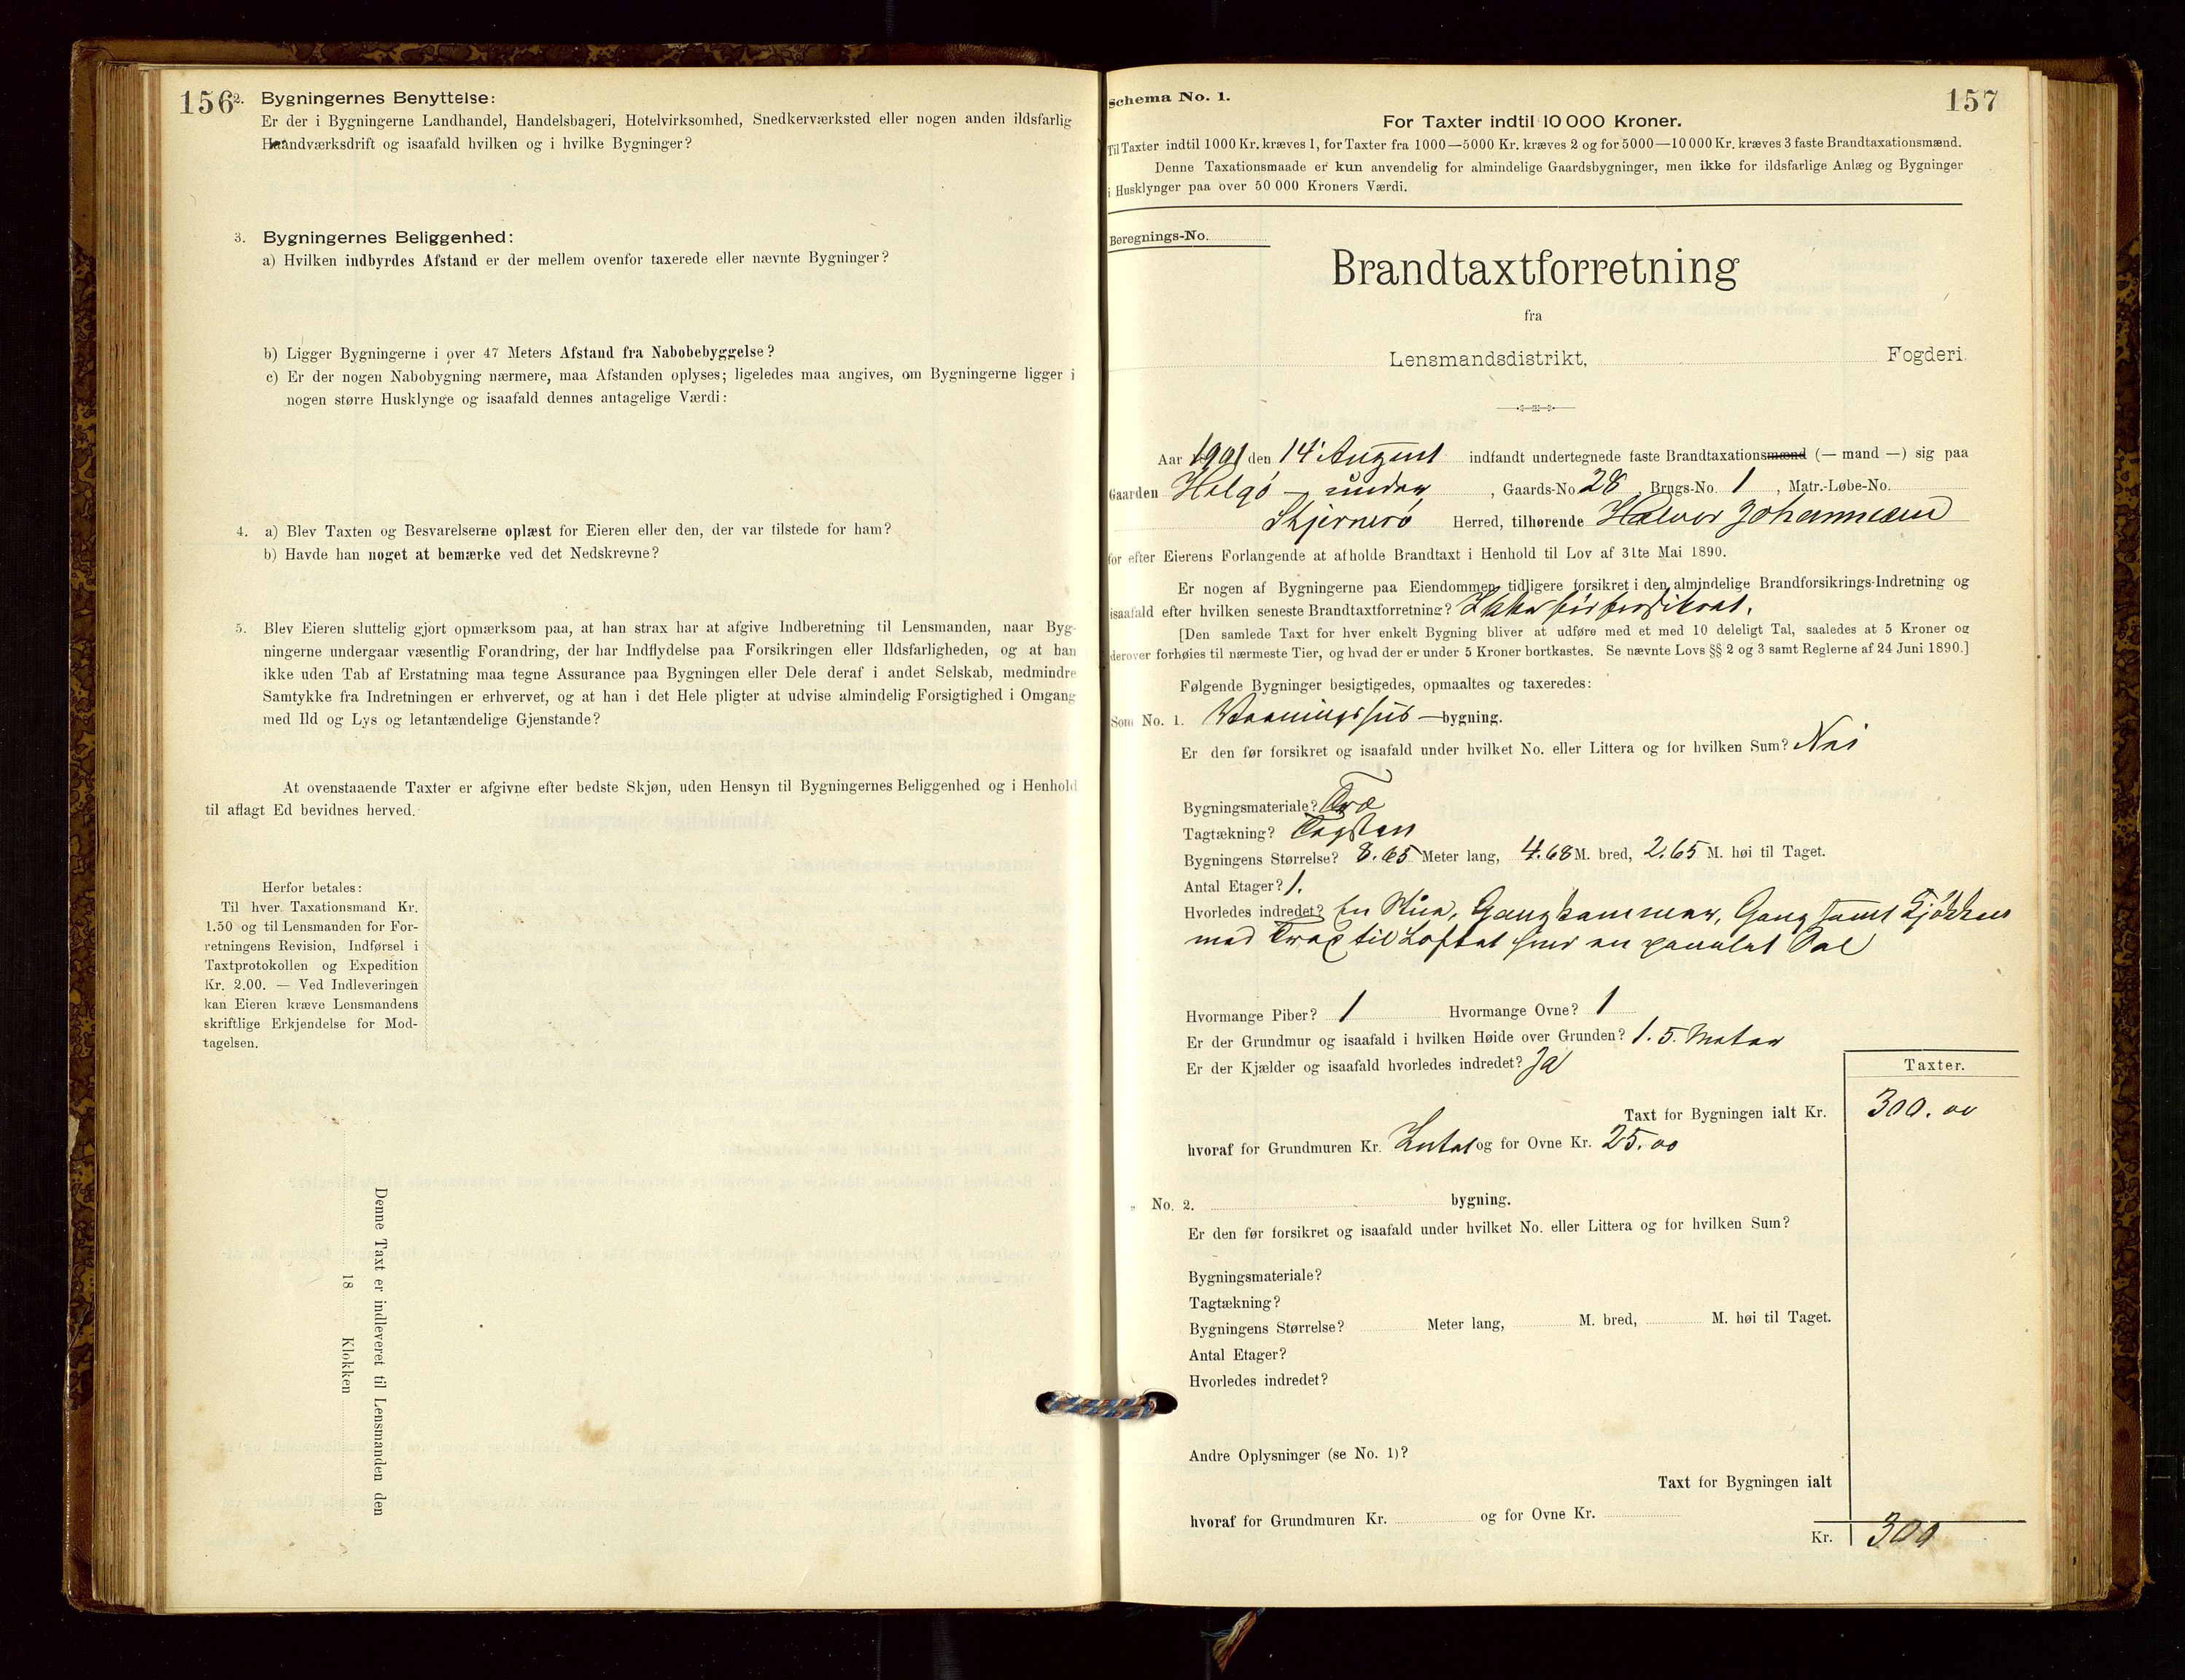 156
2. Bygningernes Benyttelse:
Er der i Bygningerne Landhandel, Handelsbageri, Hotelvirksomhed, Snedkerværksted eller nogen anden ildsfarlig
Haandværksdrift og isaafald hvilken og i hvilke Bygninger?
3. Bygningernes Beliggenhed:
a) Hvilken indbyrdes Afstand er der mellem ovenfor taxerede eller nævnte Bygninger?
b) Ligger Bygningerne i over 47 Meters Afstand fra Nabobebyggelse?
c) Er der nogen Nabobygning nærmere, maa Afstanden oplyses; ligeledes maa angives, om Bygningerne ligger i
nogen større Husklynge og isaafald dennes antagelige Værdi:
4. a) Blev Taxten og Besvarelserne oplæst for Eieren eller den, der var tilstede for ham?
b) Havde han noget at bemærke ved det Nedskrevne?
5. Blev Eieren sluttelig gjort opmærksom paa, at han strax har at afgive Indberetning til Lensmanden, naar Byg-
ningerne undergaar væsentlig Forandring, der har Indflydelse paa Forsikringen eller Ildsfarligheden, og at han
ikke uden Tab af Erstatning maa tegne Assurance paa Bygningen eller Dele deraf i andet Selskab, medmindre
Samtykke fra Indretningen er erhvervet, og at han i det Hele pligter at udvise almindelig Forsigtighed i Omgang
med Ild og Lys og letantændelige Gjenstande?
At ovenstaaende Taxter er afgivne efter bedste Skjøn, uden Hensyn til Bygningernes Beliggenhed og i Henhold
til aflagt Ed bevidnes herved.
Herfor betales:
Til hver Taxationsmand Kr.
1.50 og til Lensmanden for For-
retningens Revision, Indførsel i
Taxtprotokollen og Expedition
Kr. 2.00. — Ved Indleveringen
kan Eieren kræve Lensmandens
skriftlige Erkjendelse for Mod-
tagelsen.
Denne Taxt er indleveret til Lensmanden den
18 Klokken
157
Schema No. 1.
For Taxter indtil 10 000 Kroner.
Til Taxter indtil 1000 Kr. kræves 1, for Taxter fra 1000—5000 Kr. kræves 2 og for 5000—10000 Kr. kræves 3 faste Brandtaxationsmænd.
Denne Taxationsmaade er kun anvendelig for almindelige Gaardsbygninger, men ikke for ildsfarlige Anlæg og Bygninger
i Husklynger paa over 50 000 Kroners Værdi.
Beregnings-No.
Brandtaxtforretning
fra
Lensmandsdistrikt, Fogderi.
Aar 1901 den 14' August indfandt undertegnede faste Brandtaxationsmænd (— mand —) sig paa
Gaarden Helgö — under, Gaards-No 28, Brugs-No. 1, Matr.-Løbe-No.
Skjernerö Herred, tilhørende Halvor Johannesen
for efter Eierens Forlangende at afholde Brandtaxt i Henhold til Lov af 31te Mai 1890.
Er nogen af Bygningerne paa Eiendommen tidligere forsikret i den almindelige Brandforsikrings-Indretning og
isaafald efter hvilken seneste Brandtaxtforretning? Ikke før forsikret.
[Den samlede Taxt for hver enkelt Bygning bliver at udføre med et med 10 deleligt Tal, saaledes at 5 Kroner og
derover forhøies til nærmeste Tier, og hvad der er under 5 Kroner bortkastes. Se nævnte Lovs §§ 2 og 3 samt Reglerne af 24 Juni 1890.]
Følgende Bygninger besigtigedes, opmaaltes og taxeredes:
Som No. 1. Vaaningshus —bygning.
Er den før forsikret og isaafald under hvilket No. eller Littera og for hvilken Sum? Nei
Bygningsmateriale? Træ
Tagtækning? Tagsten
Bygningens Størrelse? 8.65 Meter lang, 4.68 M. bred, 2.65 M. høi til Taget.
Antal Etager? 1.
Hvorledes indredet? En Stue, Gangkammer, Gang samt Kjøkken
med Trap til Loftet hvor en panelet Sal
Hvormange Piber? 1 Hvormange Ovne? 1
Er der Grundmur og isaafald i hvilken Høide over Grunden? 1.5. Meter
Er der Kjælder og isaafald hvorledes indredet? Ja
Taxter.
Taxt for Bygningen ialt Kr. 300.00
hvoraf for Grundmuren Kr. Intet og for Ovne Kr. 25.00
" No. 2. bygning.
Er den før forsikret og isaafald under hvilket No. eller Littera og for hvilken Sum?
Bygningsmateriale?
Tagtækning?
Bygningens Størrelse? Meter lang, M. bred, M. høi til Taget.
Antal Etager?
Hvorledes indredet?
Andre Oplysninger (se No. 1)?
Taxt for Bygningen ialt
hvoraf for Grundmuren Kr. og for Ovne Kr.
Kr. 300